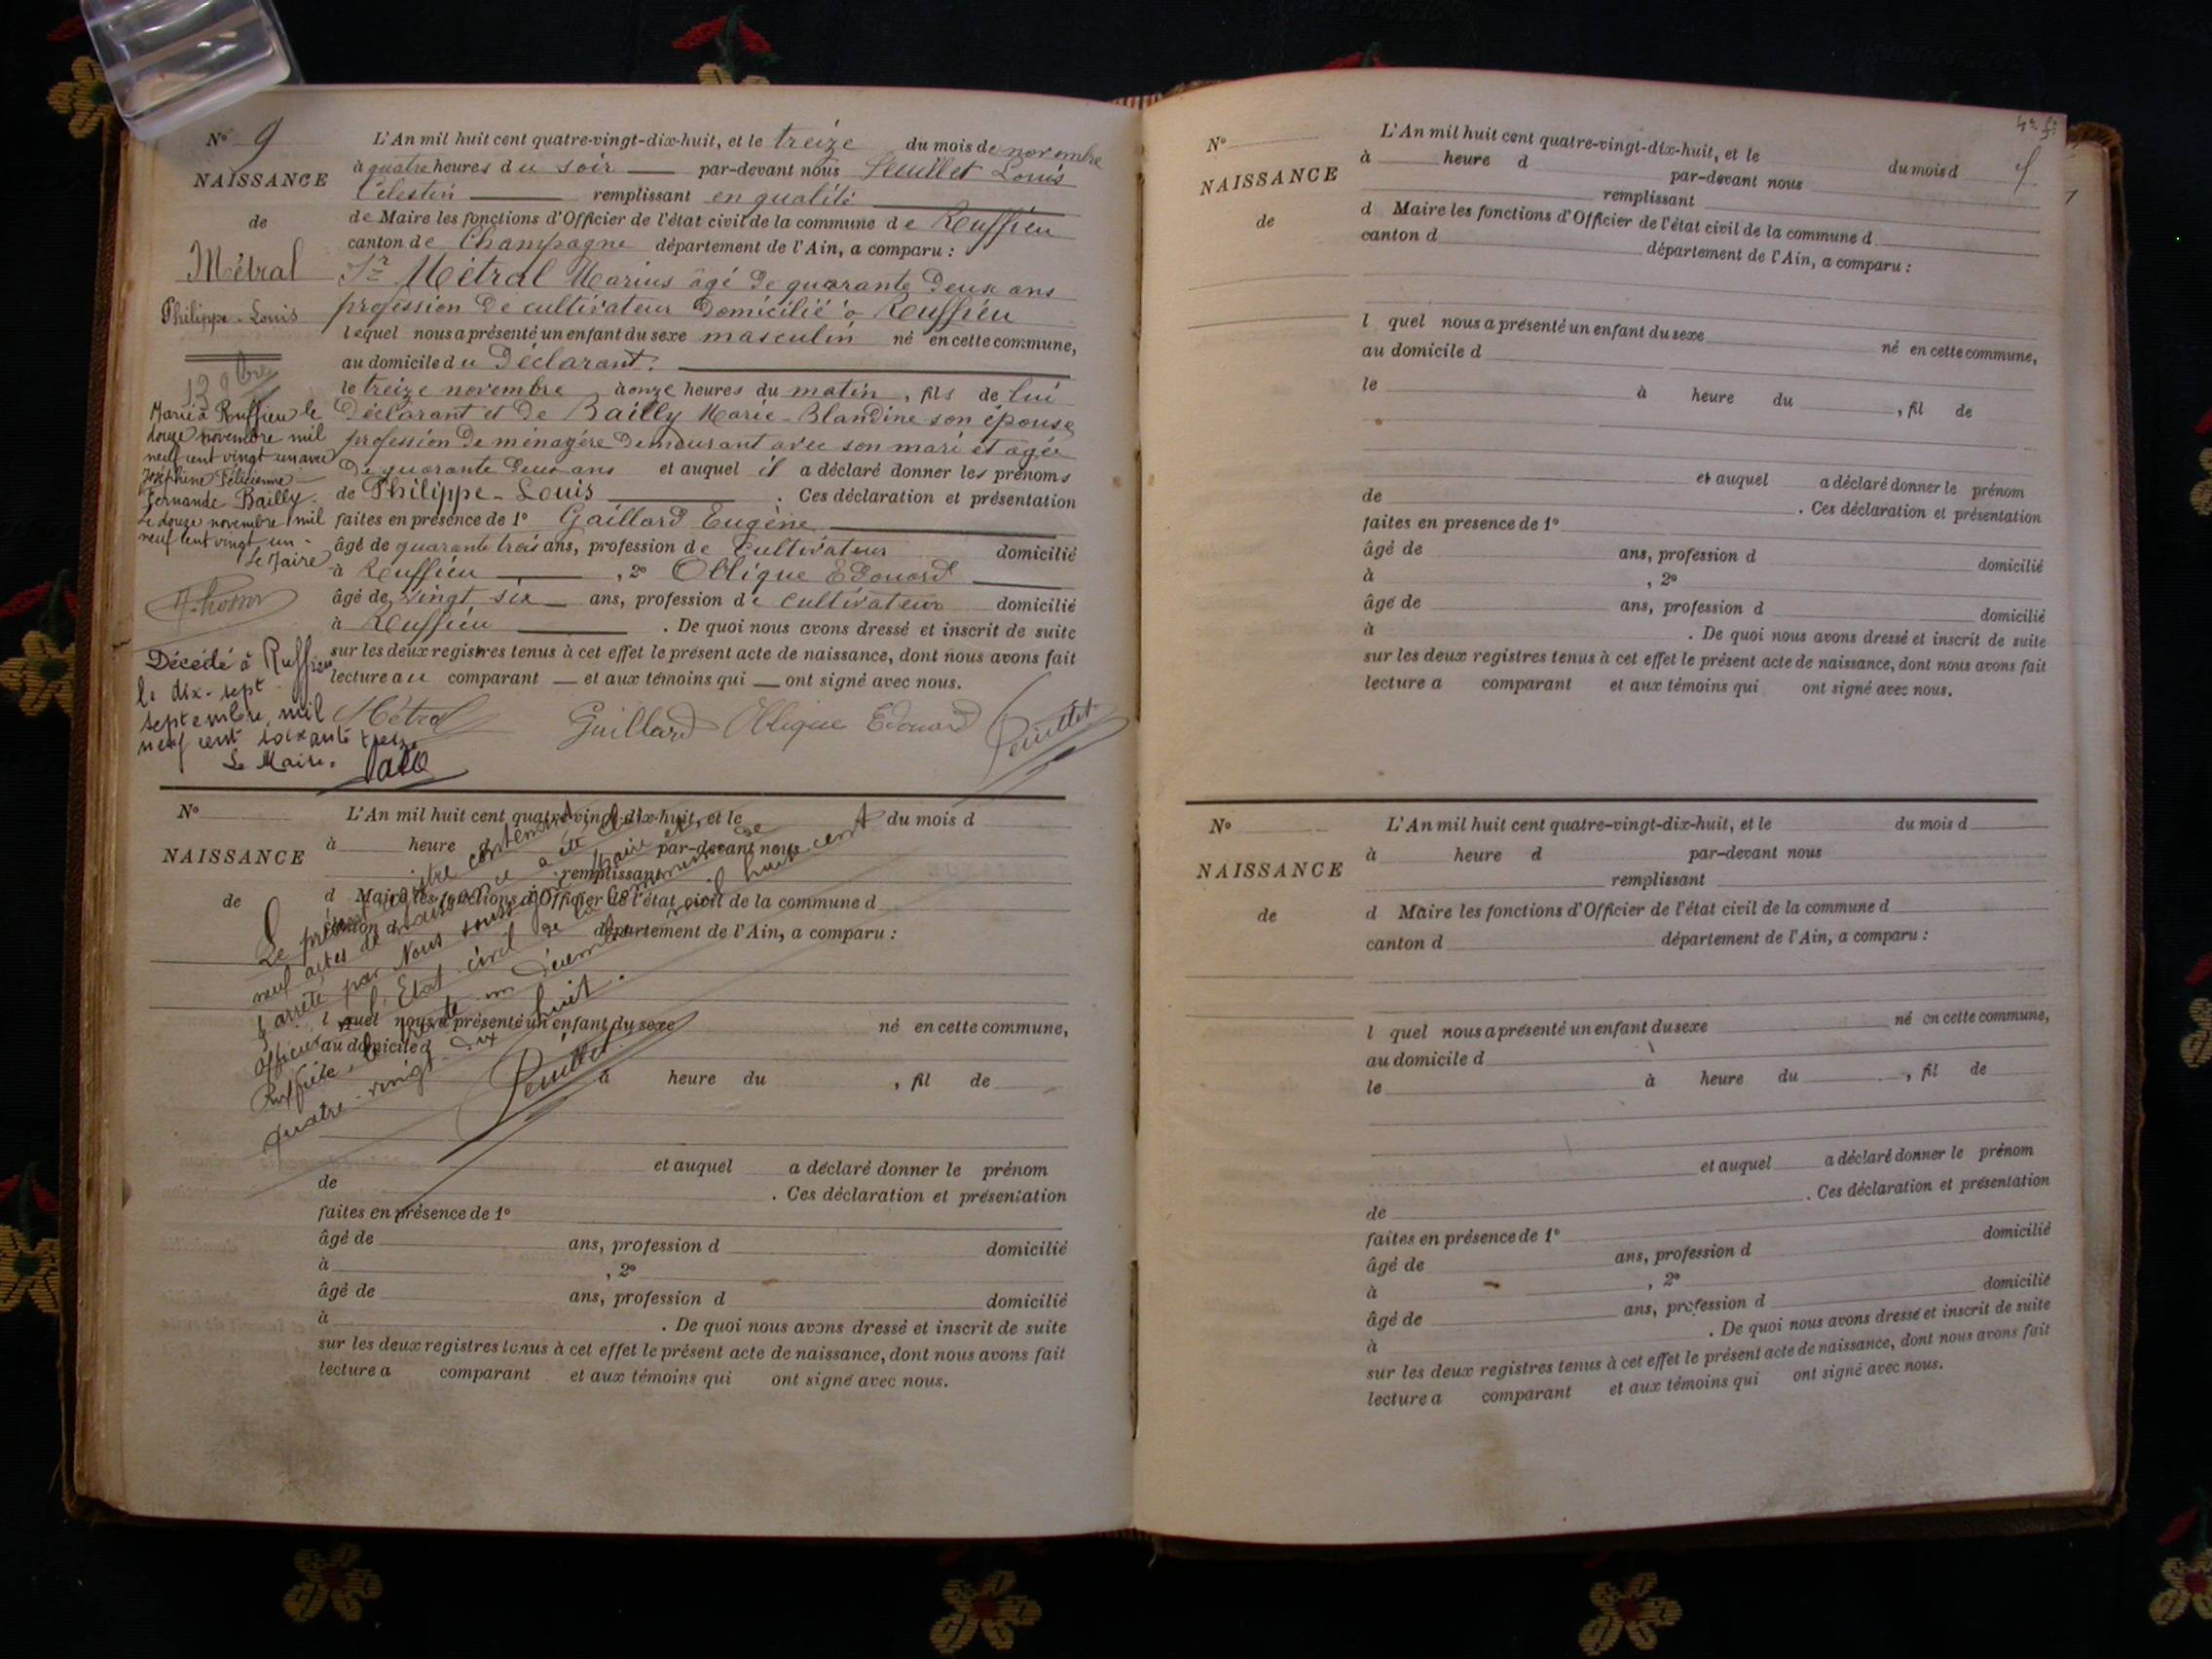 N° 9
NAISSANCE
de
Métral
Philippe-Louis
13 9bre
Marié à Ruffieu le
douze novembre mil
neuf cent vingt un avec
Joséphine Félicienne
Fernande Bailly.
Le douze novembre mil
neuf cent vingt un.
Le Maire
Décédé à Ruffieu
le dix-sept
septembre mil
neuf cent soixante treize
Le Maire.
L'An mil huit cent quatre-vingt-dix-huit, et le treize du mois de novembre
à quatre heures du soir par-devant nous Peuillet Louis
Célestin remplissant en qualité
de Maire les fonctions d'Officier de l'état civil de la commune de Ruffieu
canton de Champagne département de l'Ain, a comparu :
Sr Métral Marius âgé de quarante deux ans
profession de cultivateur domicilié à Ruffieu
lequel nous a présenté un enfant du sexe masculin né en cette commune,
au domicile du Déclarant.
le treize novembre à onze heures du matin, fils de lui
Déclarant et de Bailly Marie-Blandine son épouse
profession de ménagère demeurant avec son mari et agée
de quarante deux ans et auquel il a déclaré donner les prénoms
de Philippe-Louis . Ces déclaration et présentation
faites en présence de 1° Gaillard Eugène
âgé de quarante trois ans, profession de cultivateur domicilié
à Ruffieu , 2° Oblique Edouard
âgé de vingt six ans, profession de cultivateur domicilié
à Ruffieu . De quoi nous avons dressé et inscrit de suite
sur les deux registres tenus à cet effet le présent acte de naissance, dont nous avons fait
lecture au comparant et aux témoins qui ont signé avec nous.
Métral Guillard Oblique Edouard Peuillet
N°
NAISSANCE
de
L'An mil huit cent quatre-vingt-dix-huit, et le du mois d
à heure d par-devant nous
remplissant
d Maire les fonctions d'Officier de l'état civil de la commune d
canton d département de l'Ain, a comparu :
l quel nous a présenté un enfant du sexe né en cette commune,
au domicile d
à heure du , fil de
et auquel a déclaré donner le prénom
de . Ces déclaration et présentation
faites en présence de 1°
âgé de ans, profession d domicilié
à , 2°
âgé de ans, profession d domicilié
à . De quoi nous avons dressé et inscrit de suite
sur les deux registres tenus à cet effet le présent acte de naissance, dont nous avons fait
lecture a comparant et aux témoins qui ont signé avec nous.
Le présent registre contenant
neuf actes de naissance a été clos
& arrêté par Nous soussigné Maire et
officier de l'Etat civil de la commune de
Ruffieu, le trente un décembre mil huit cent
quatre-vingt dix huit.
Peuillet
N°
NAISSANCE
de
L'An mil huit cent quatre-vingt-dix-huit, et le du mois d
à heure d par-devant nous
remplissant
d Maire les fonctions d'Officier de l'état civil de la commune d
canton d département de l'Ain, a comparu :
l quel nous a présenté un enfant du sexe né en cette commune,
au domicile d
le à heure du , fil de
et auquel a déclaré donner le prénom
de . Ces déclaration et présentation
faites en présence de 1°
âgé de ans, profession d domicilié
à , 2°
âgé de ans, profession d domicilié
à . De quoi nous avons dressé et inscrit de suite
sur les deux registres tenus à cet effet le présent acte de naissance, dont nous avons fait
lecture a comparant et aux témoins qui ont signé avec nous.
N°
NAISSANCE
de
L'An mil huit cent quatre-vingt-dix-huit, et le du mois d
à heure d par-devant nous
remplissant
d Maire les fonctions d'Officier de l'état civil de la commune d
canton d département de l'Ain, a comparu :
l quel nous a présenté un enfant du sexe né en cette commune,
au domicile d
le à heure du , fil de
et auquel a déclaré donner le prénom
de . Ces déclaration et présentation
faites en présence de 1°
âgé de ans, profession d domicilié
à , 2°
âgé de ans, profession d domicilié
à . De quoi nous avons dressé et inscrit de suite
sur les deux registres tenus à cet effet le présent acte de naissance, dont nous avons fait
lecture a comparant et aux témoins qui ont signé avec nous.